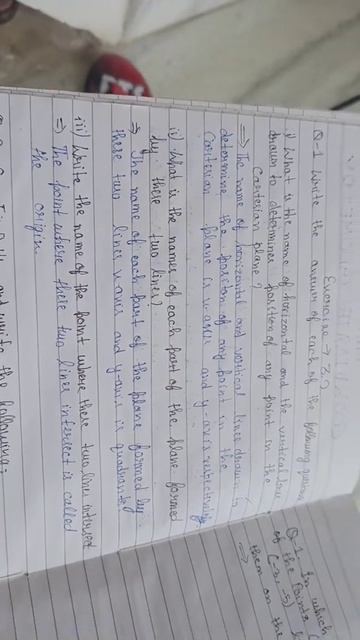 Exercise → 3.2
Q-1 Write the answer of each of the following
i) What is the name of horizontal and the vertical line
drawn to determines position of any point in the
Cartesian plane?
⇒ The name of horizontal and vertical line drawn
determine the position of any point in the
Cartesian plane is x-axis and y-axis
ii) What is the names of each part of the plane formed
by these two lines?
⇒ The name of each part of the plane formed by
these two lines x axis and y-axis is quadrants
iii) Write the name of the point where these two line intersect
⇒ The point where these two lines intersect is called
the origin.
and write the following:
In which
Q-1 of the Points
of (-2,
them on the
⇒